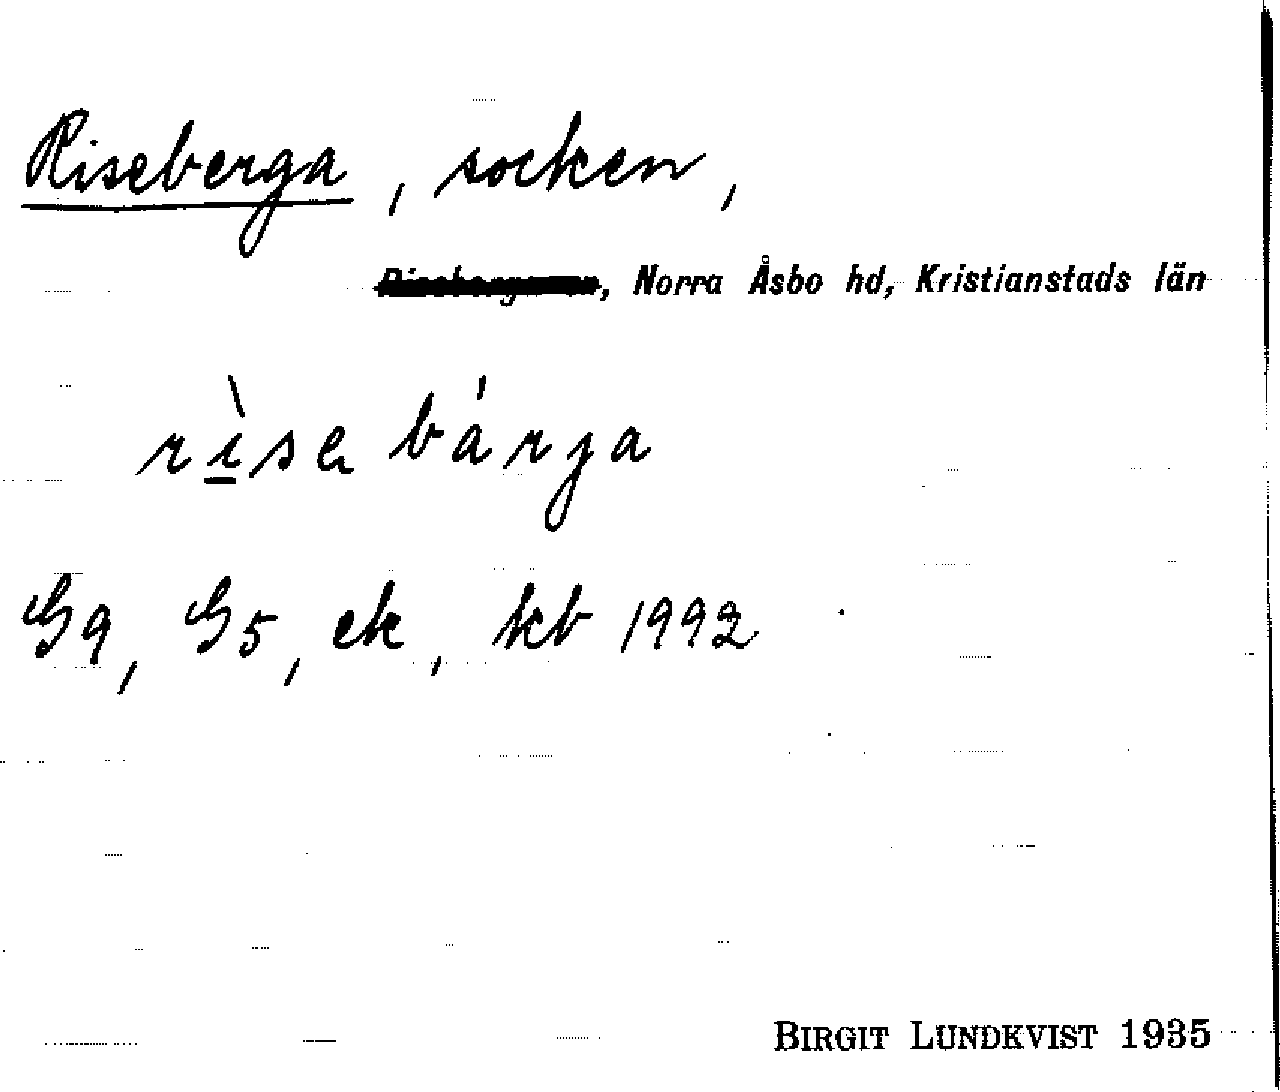 Riseberga, socken,
, Norra Åsbo hd, Kristianstads län
rìsa bárja
G9, G5, ek, kb 1992
BIRGIT LUNDKVIST 1935